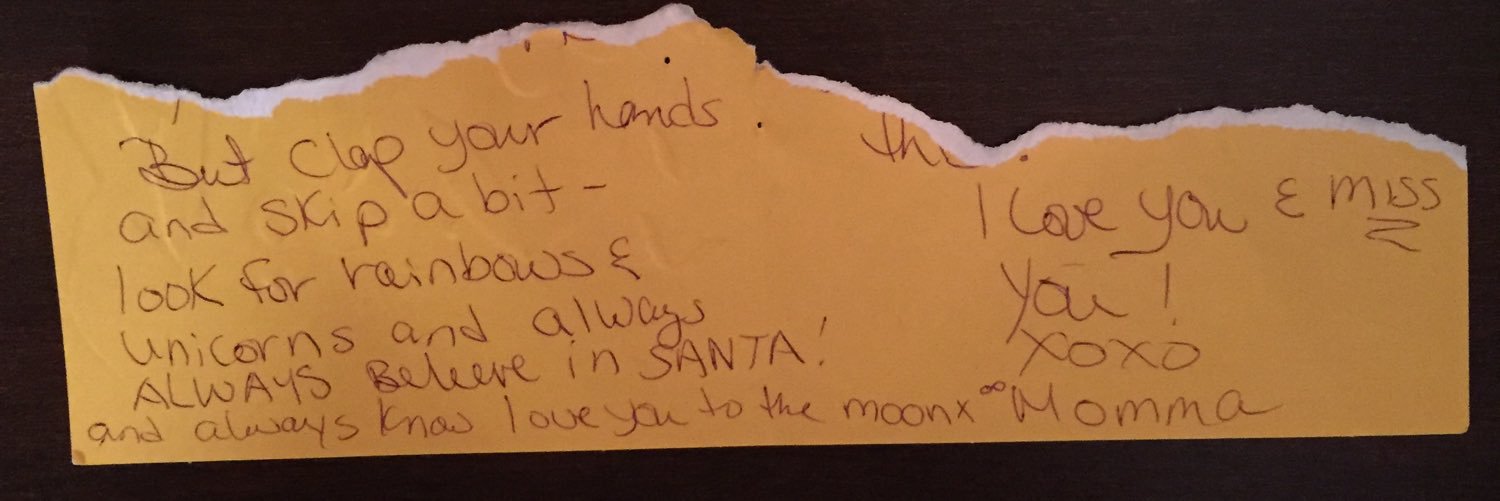 But clap your hands
and skip a bit -
look for rainbows &
unicorns and always
ALWAYS Believe in SANTA!
and always know I love you to the moon x ∞
I love you & miss
you!
xoxo
Momma